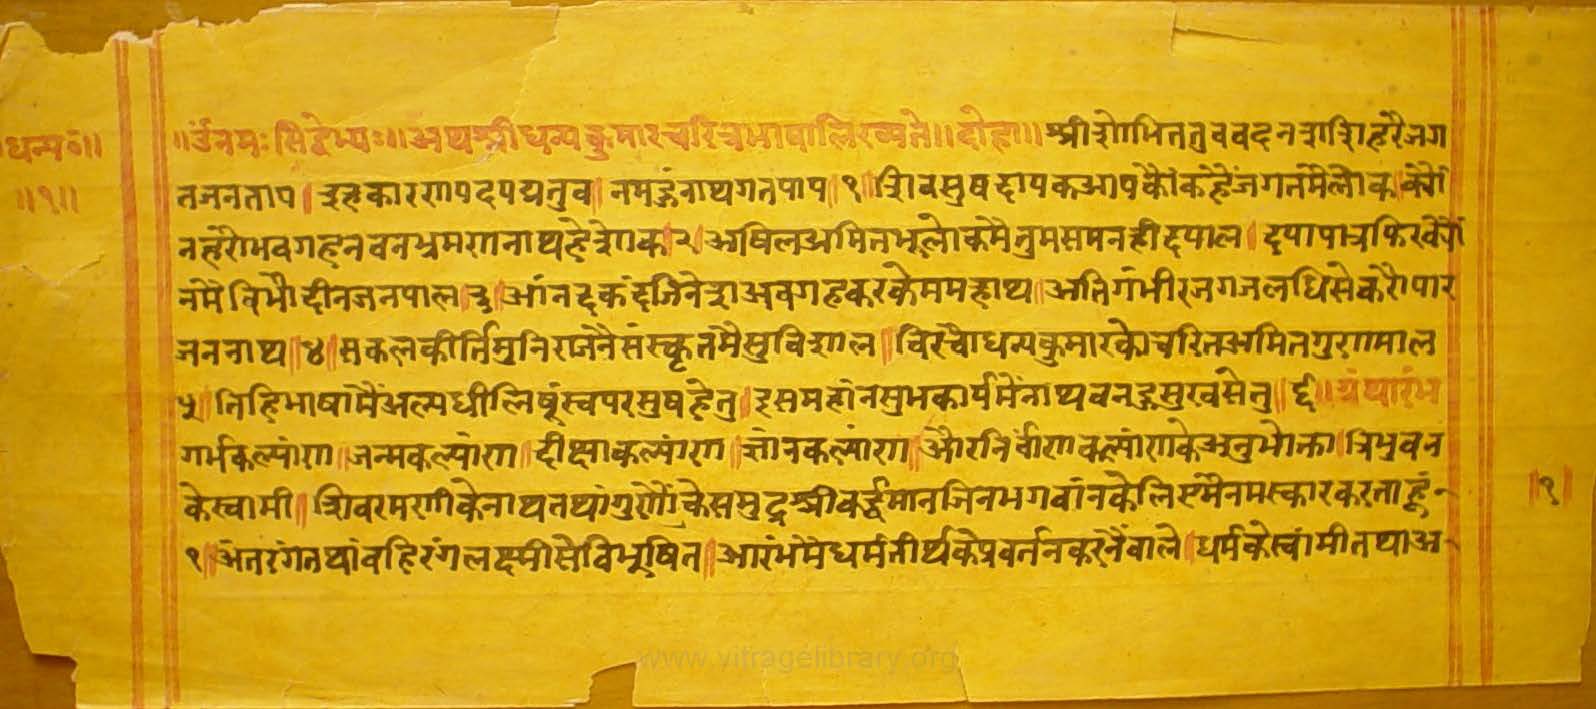 धन्यकु॰॥
॥१॥
॥ॐनमः सिद्धेभ्यः॥ अथ श्रीधन्यकुमारचरित्रभाषालिख्यते॥ दोहा॥ श्रीशोभिततुववदनशशिहरैजग
तजनताप। इहकारणपदपद्मतुव॥ नमऊंनाथगतपाप॥१॥ शिवसुषदायकआपकौंकहैंजगतमैलोक॥ क्यों
नहरोभवगहनवनभ्रमणनाथहेशोक॥२॥ अषिलअमितभूलोकमैतुमसमनहीदयाल। दयापात्रफिरक्यों
नमैविभौदीनजनपाल॥३॥ आंनदकंदजिनेशअवगहकरकेममहाथ॥ अतिगंभीरजगजलधिसेकरोपार
जननाथ॥४॥ सकलकीर्त्तिमुनिराजेनैसंस्कृतमैसुविशाल॥ विरच्यौधन्यकुमारकोचरितअमितगुणमाल
५॥ तिहिभाषामैंअल्पधीलिषूंस्वपरसुषहेतु॥ इसमहांनसुभकार्यमेंनाथवनहुसुखसेतु॥६॥ ग्रंथारंभ
गर्भकल्यांण॥ जन्मकल्यांण॥ दीक्षाकल्यांण॥ ज्ञांनकल्यांण॥ औरनिर्वांणकल्यांणकेअनुभोक्ता॥ त्रिभुवन
केस्वामी॥ शिवरमणीकेनाथतथांगुणोंकेससमुद्रश्रीवर्द्धमानजिनभगवांनकेलिएमैनमस्कारकरताहूं
१॥ अंतरंगतथांवहिरंगलक्ष्मीसेविभूषित॥ आरंभमेधर्मतीर्थकेप्रवर्तनकरनेंवाले॥ धर्मकेस्वांमीतथाअ
॥१॥
www.vitragelibrary.org